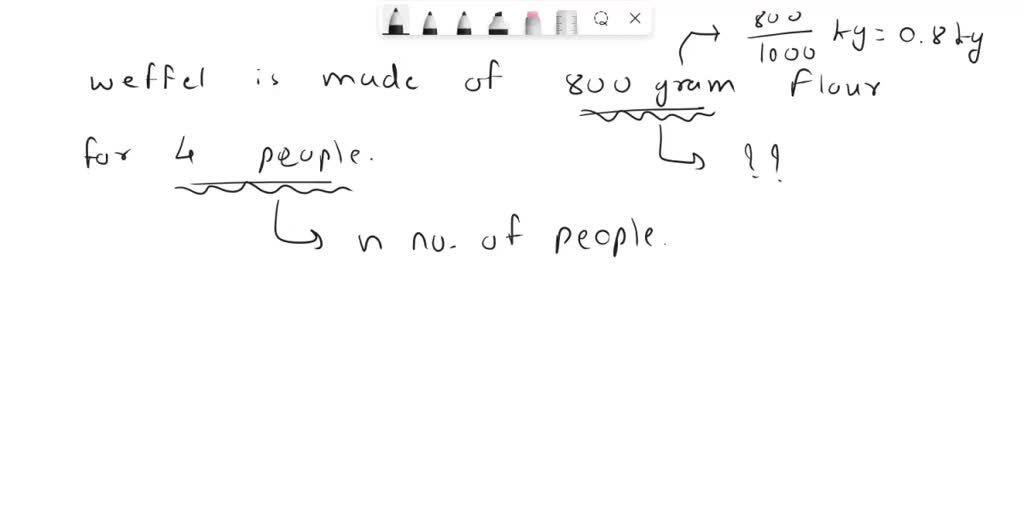 800/1000 kg = 0.8 kg
weffel is made of 800 gram flour
for 4 people.
??
n no. of people.